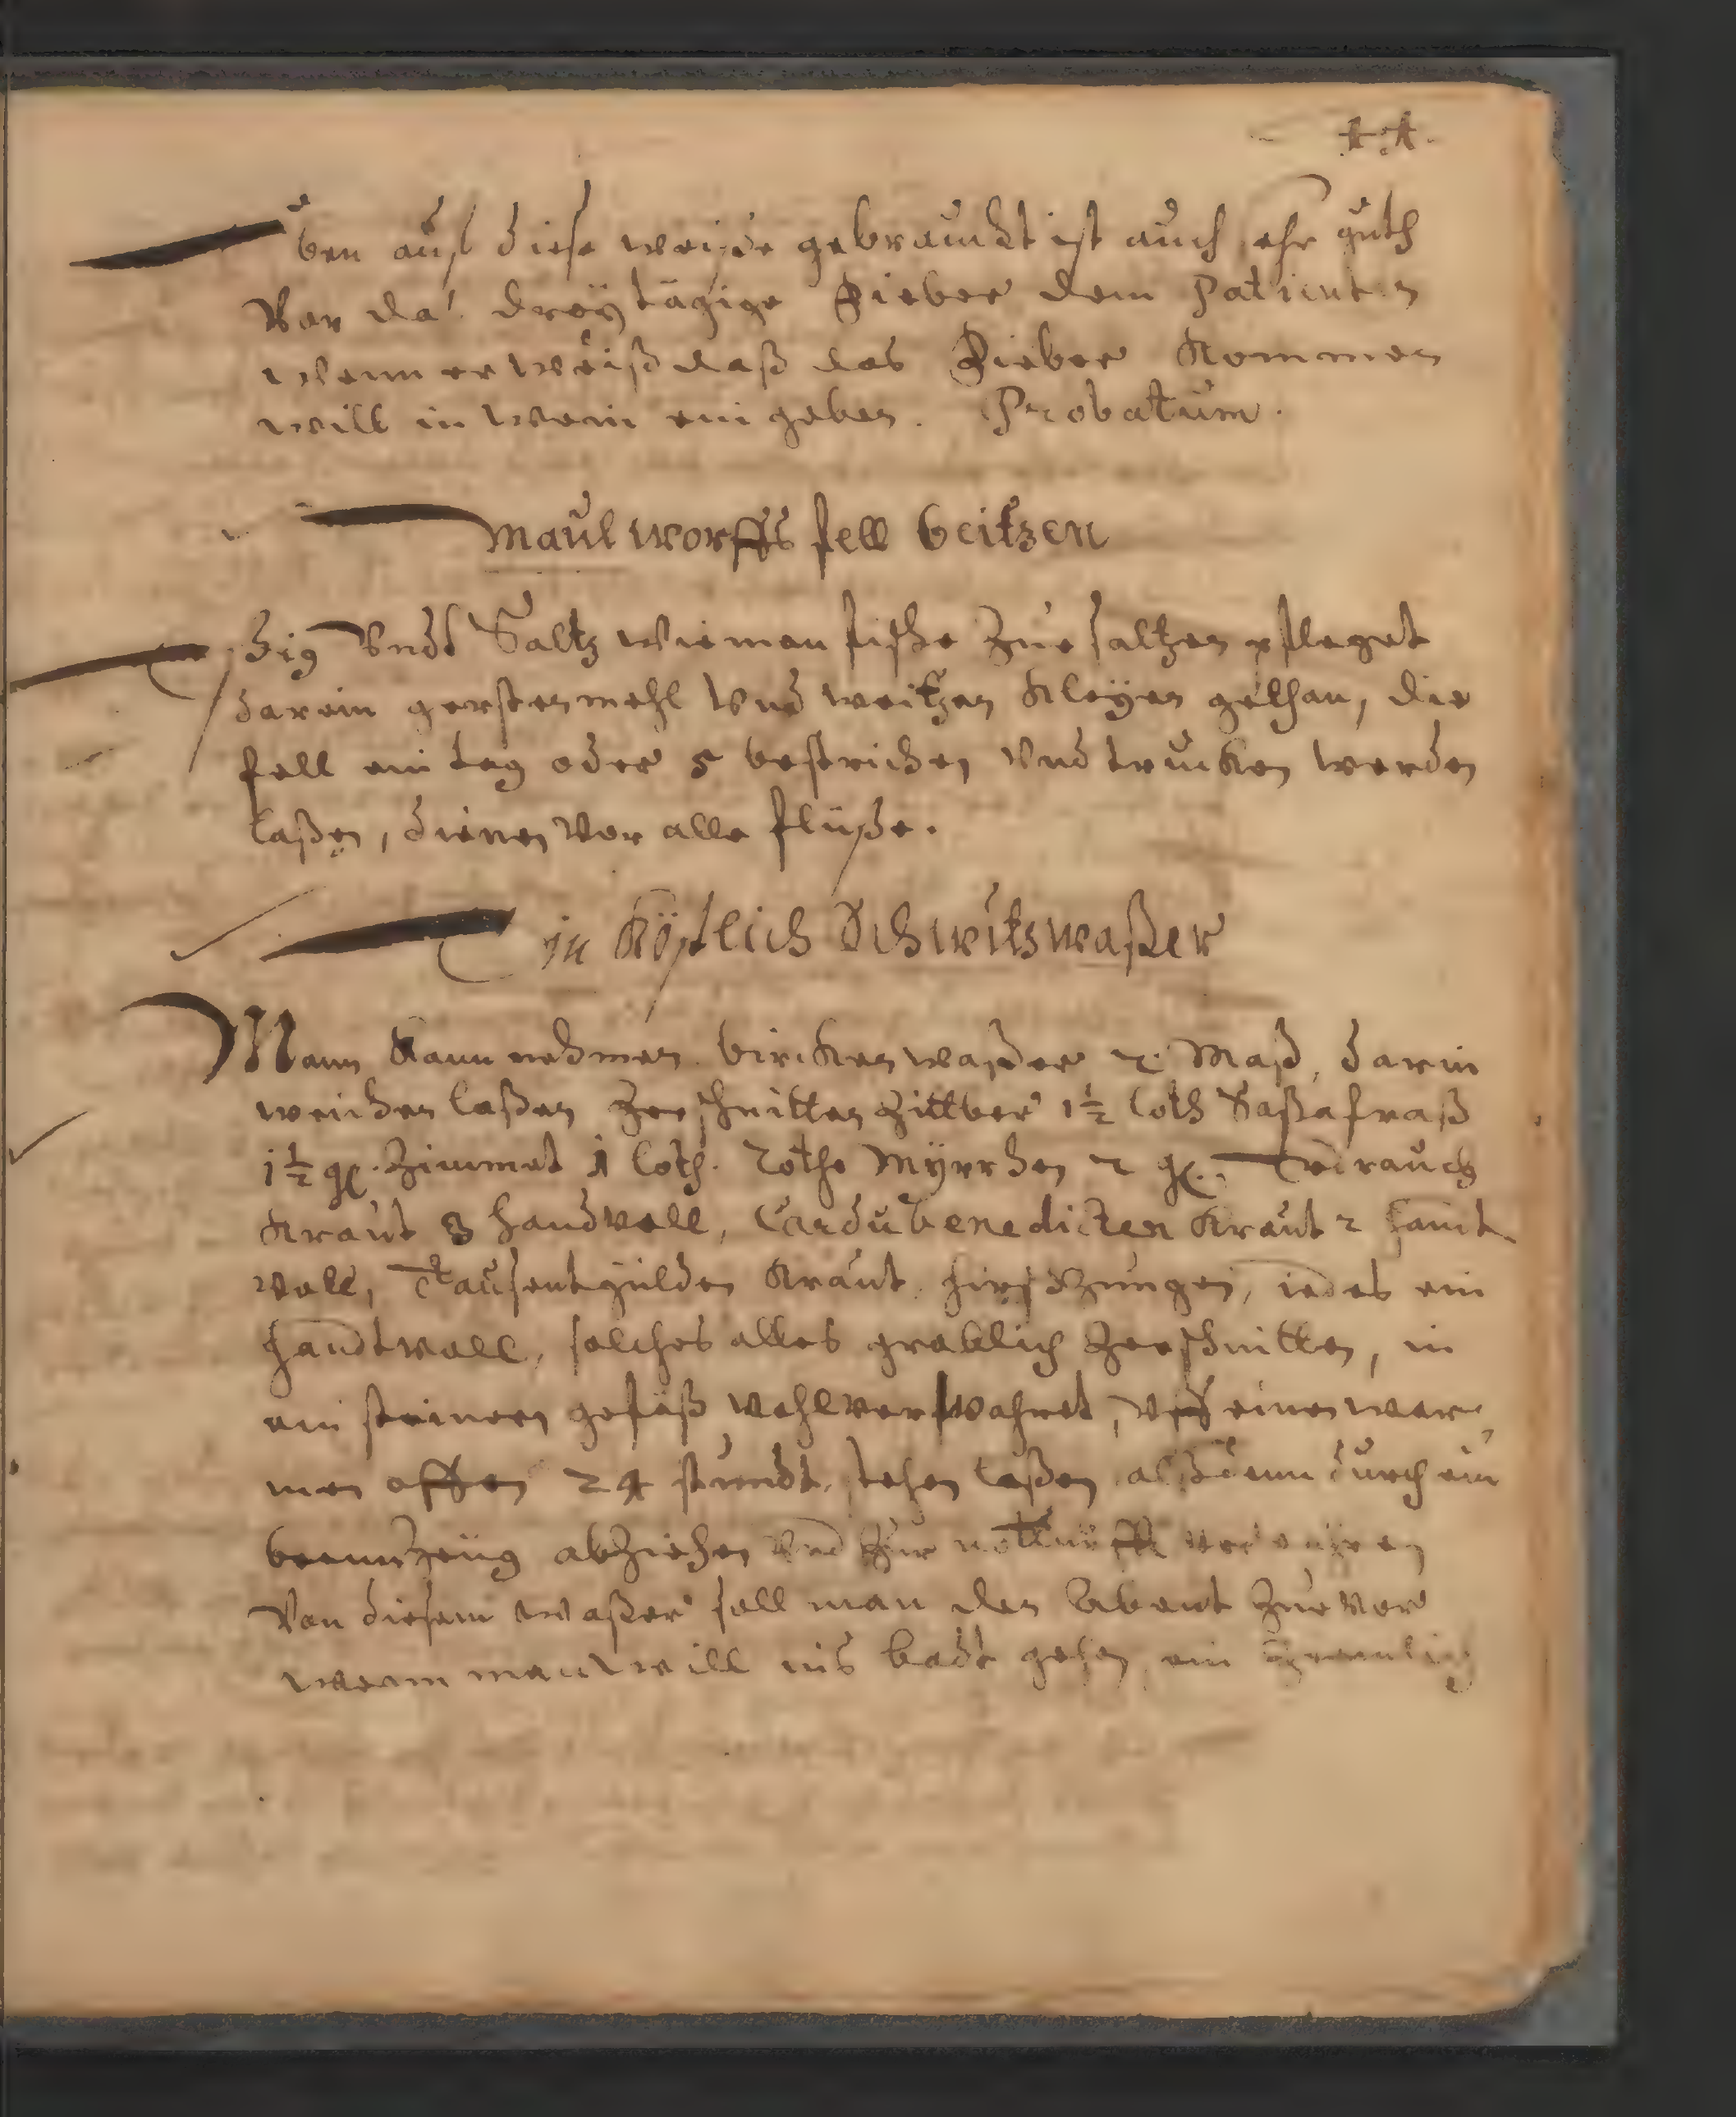 44.
Eben auf diese weiße gebraucht ist auch sehr guth
Vor das dreÿtägige Fieber dem Patienten
Wenn er weiß daß das Fieber Kommen
will in wein ein geben. Probatum.
Maulworffs fell beitzen
Eßig Vndt Saltz wie man fische zue saltzen pfleget
darein gerstenmehl Vnd weitzen Kleÿen gethan, die
fell ein tag oder 5 bestrichen Vnd trucken werden
laßen, dienen Vor alle flüße.
Ein Köstlich Schwitzwaßer
Mann Kann nehmen bircken waßer 2 Maß, darin
weichen laßen zerschnitten Zittber 1½ loth Saßafraß
1½ q. Zimmet 1 loth. Rothe Mÿrrhen 2 q. Erdrauch
Kraut 3 handvoll, Cardubenedicten Kraut 2 handt
voll, Tausentgülden Kraut, hirschzungen, iedes ein
handtvoll, solches alles gröblich zerschnitten, in
ein steinern gefäß wohlverwahret, vff einen war
men offen 24 stundt stehen laßen, alßdenn durch ein
brennzeüg abziehen Vnd zur notturfft
Von diesem waßer soll man den Abent zuevor
wenn man will ins badt gehen, ein